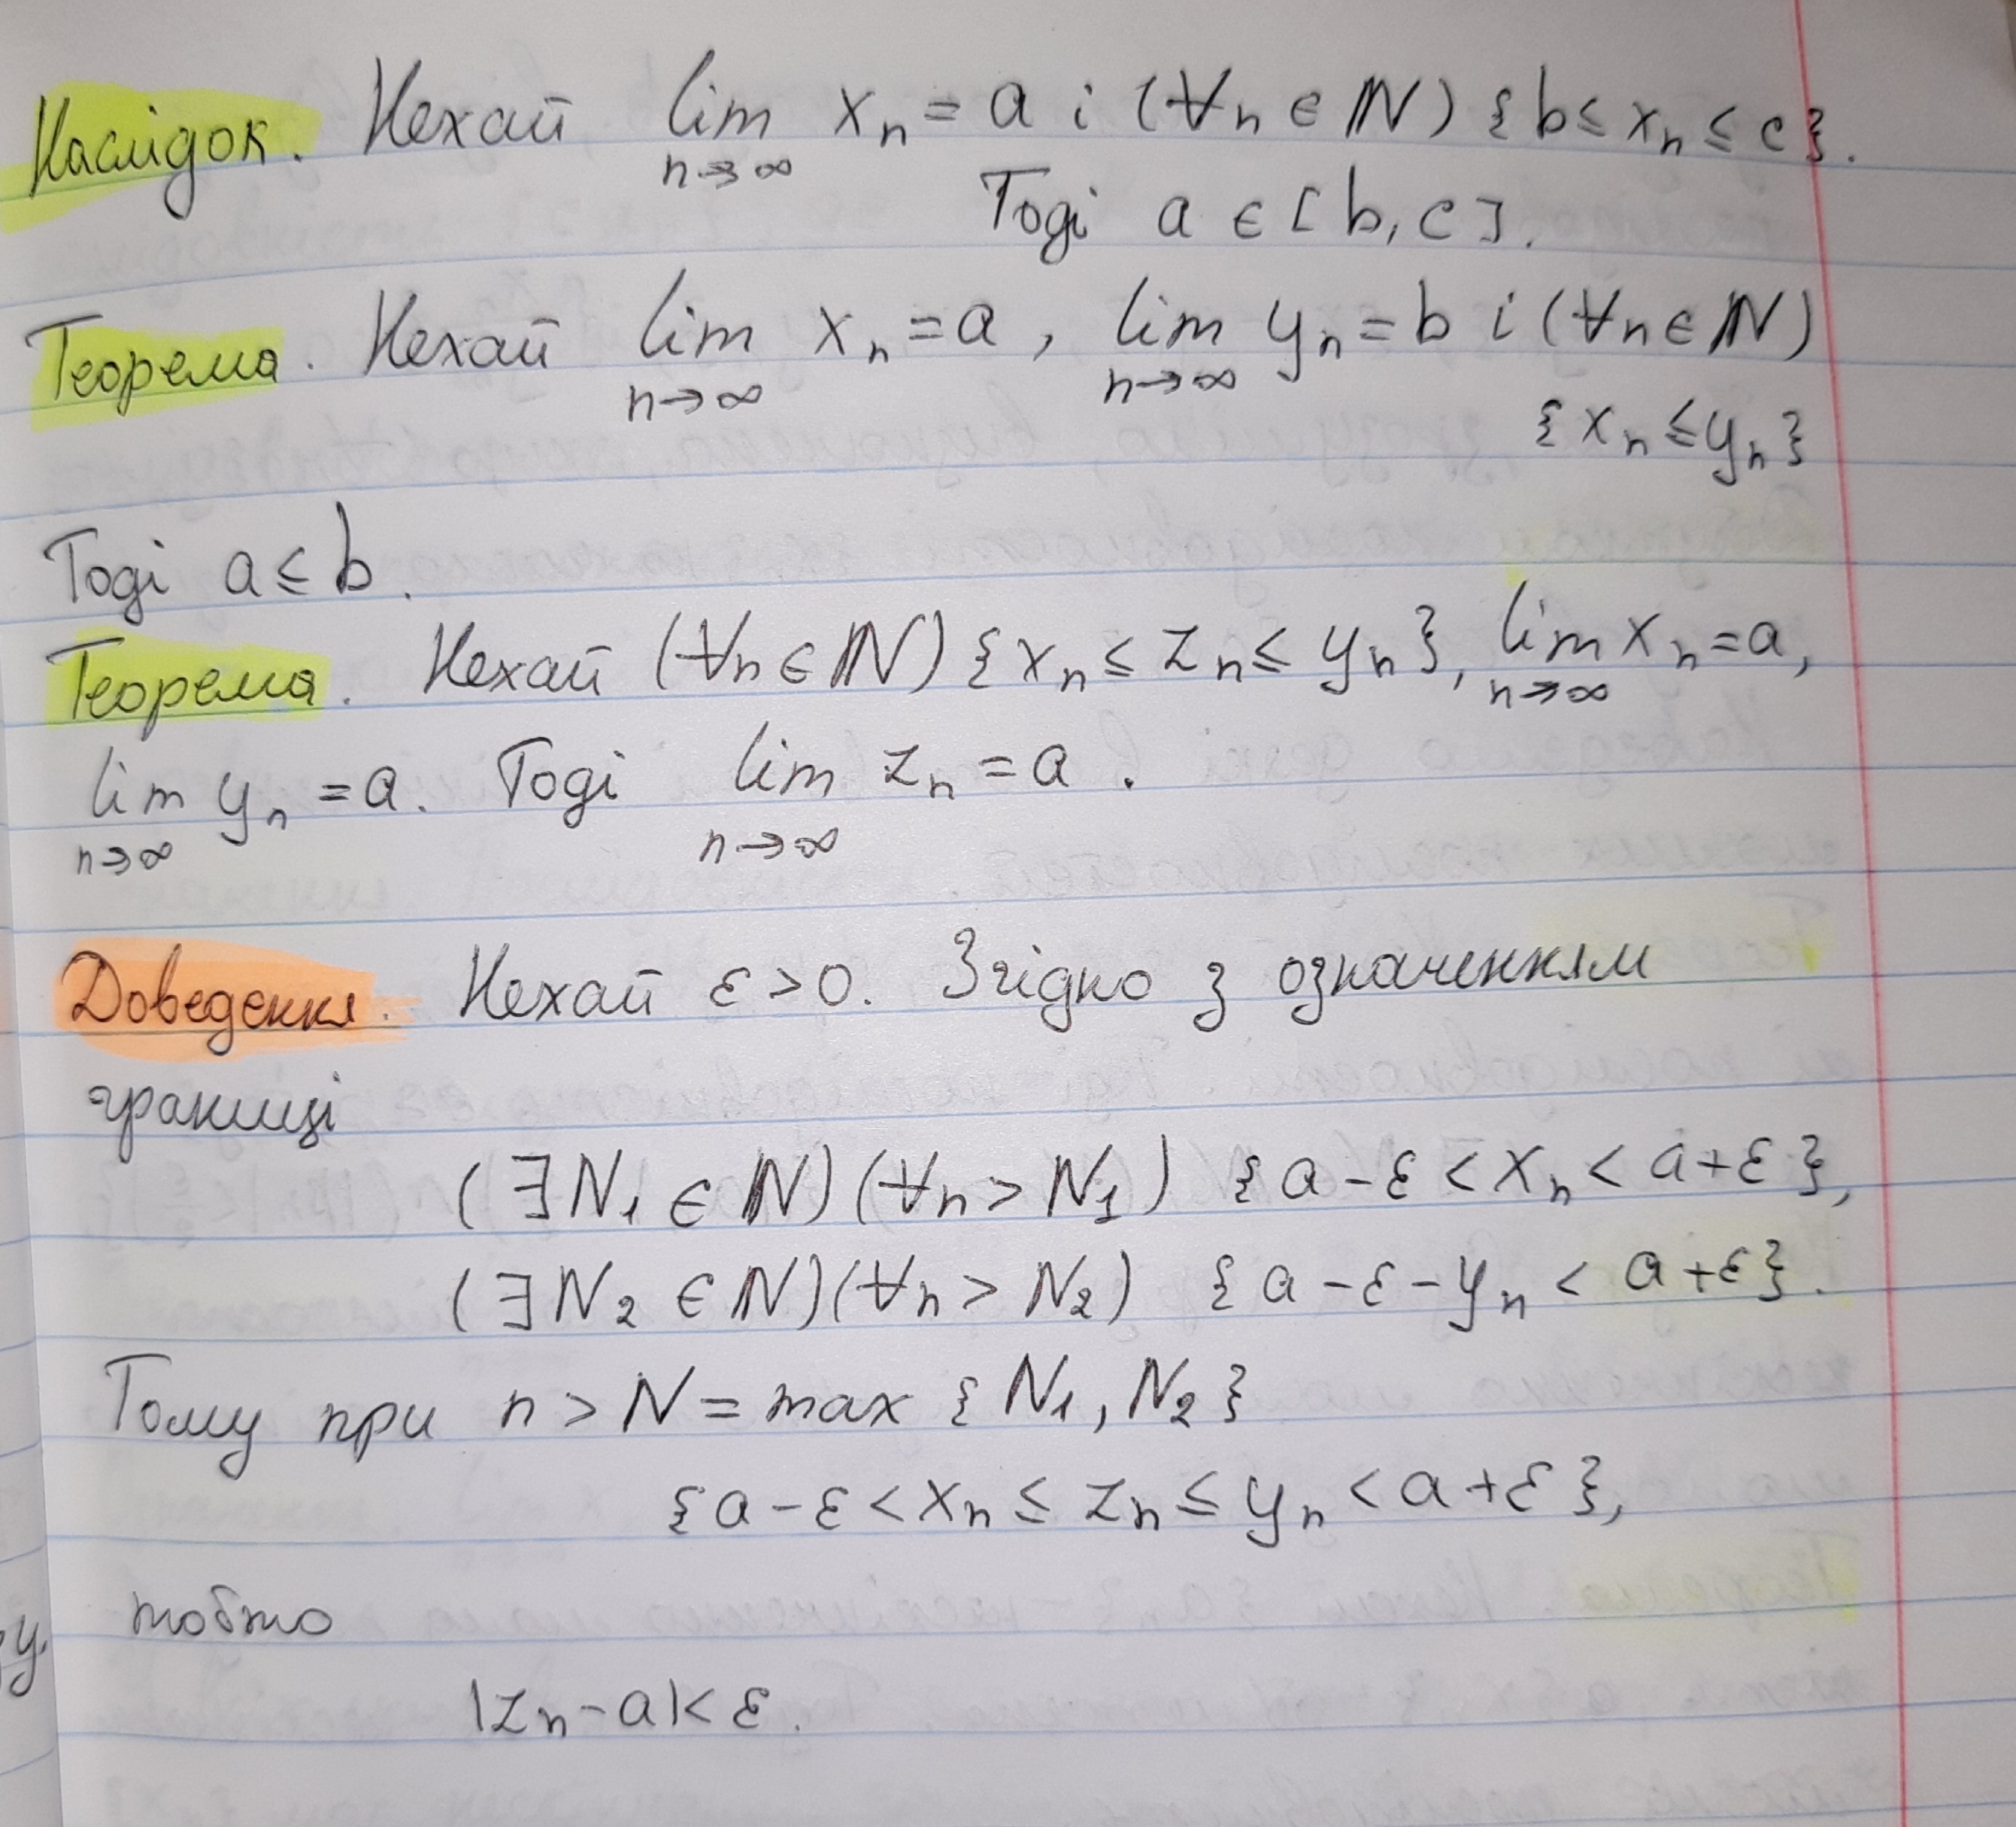 Наслідок. Нехай lim x_n = a і (∀n ∈ ℕ) {b ≤ x_n ≤ c}.
n→∞
Тоді a ∈ [b, c].
Теорема. Нехай lim x_n = a, lim y_n = b і (∀n ∈ ℕ)
n→∞ n→∞
{x_n ≤ y_n}
Тоді a ≤ b.
Теорема. Нехай (∀n ∈ ℕ) {x_n ≤ z_n ≤ y_n}, lim x_n = a,
n→∞
lim y_n = a. Тоді lim z_n = a.
n→∞ n→∞
Доведення. Нехай ε > 0. Згідно з означенням
границі
(∃N₁ ∈ ℕ) (∀n > N₁) {a - ε < x_n < a + ε},
(∃N₂ ∈ ℕ) (∀n > N₂) {a - ε - y_n < a + ε}.
Тому при n > N = max {N₁, N₂}
{a - ε < x_n ≤ z_n ≤ y_n < a + ε},
тобто
|z_n - a| < ε.